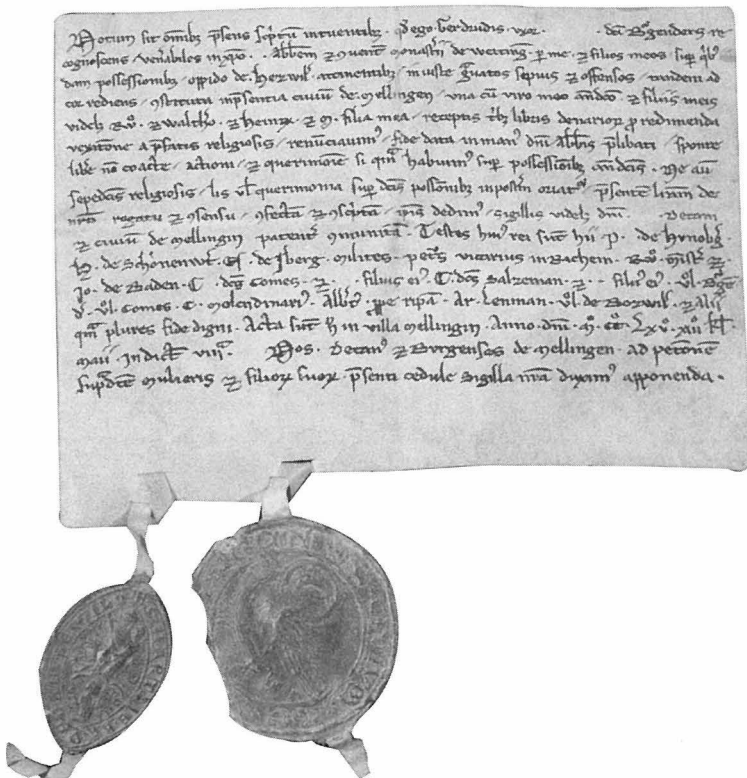 Notum sit omībꝫ p̄sens sc̄ptū intuentibꝫ · qd̓ ego Gerdrudis · vxor · dc̄i Bv̊genders re
cognoscens · ven̓abiles · abb̄em ⁊ ꝯuent̄ monast̓ii de wetting̓ · per me · ⁊ filios meos · sup̓ qͥbꝰ
dam possessionibꝫ · oppido de · Herwil̓ · attinentibꝫ · iniuste g̓uatos sepius ⁊ offensos · tandem ad
cor rediens · ꝯstituta in p̄sentia ciuiū de · Mellingen · vna cū viro meo ⁊ filiis meis
videlꝫ Rv̊ · ⁊ walth̓o · ⁊ heinr̓ · ⁊ M · filia mea · receptis libris denariorꝫ p̄ redimenda
vexat̓one a p̄fatis religiosis · renūciauimꝰ · fide data in manꝰ dn̄i abb̄is p̄libati · sponte
lib̓e nō coacte · actioni · ⁊ querimonie si qͣm habuimꝰ sup̓ possessionibꝫ · Ne aūt
sepedc̄is religiosis · lis vl̓ querimonia sup̓ dc̄is possōnibꝫ inpost̓m oriatᷣ · p̄sentē litt̓am de
nr̄o rogatu ⁊ ꝯsensu · ꝯfectā ⁊ ꝯsc̓ptā · ip̄is dedimꝰ · sigillis videlꝫ dn̄i · · Decani
⁊ ciuiū de mellingin patent̓ munitā · Testes huiꝰ rei sūt hii · P · de hvnobg̓ ·
H · de Schönenwt̓ · de Jberg · milites · pet̓s vicarius in Rachem · Rv̊ · ⁊ ·
Jo · de Baden · C · dc̄s comes · ⁊ · · filius eiꝰ · C · dc̄s Salzeman · ⁊ · · filiꝰ eiꝰ · Vl̓ ·
Vl̓ · comes · C · molendinariꝰ · Alb̓t̓ · p̓pe ripā · Ar · Lenman · Vl̓ · de Bozwil̓ · ⁊ alii
qͣm plures fide digni · Acta sūt h̓ in villa mellingin · Anno · dn̄i · M̊ · CC̊ · Lxv̊ · xiiii̊ kl̓
maii · Indict̄ viiiᵃ · Nos · Decanꝰ ⁊ Bvrgenses de mellingen · ad petitōnē
sup̓dc̄e mulieris ⁊ filiorꝫ suorꝫ · p̄senti cedule sigilla nr̄a duximꝰ apponenda ·